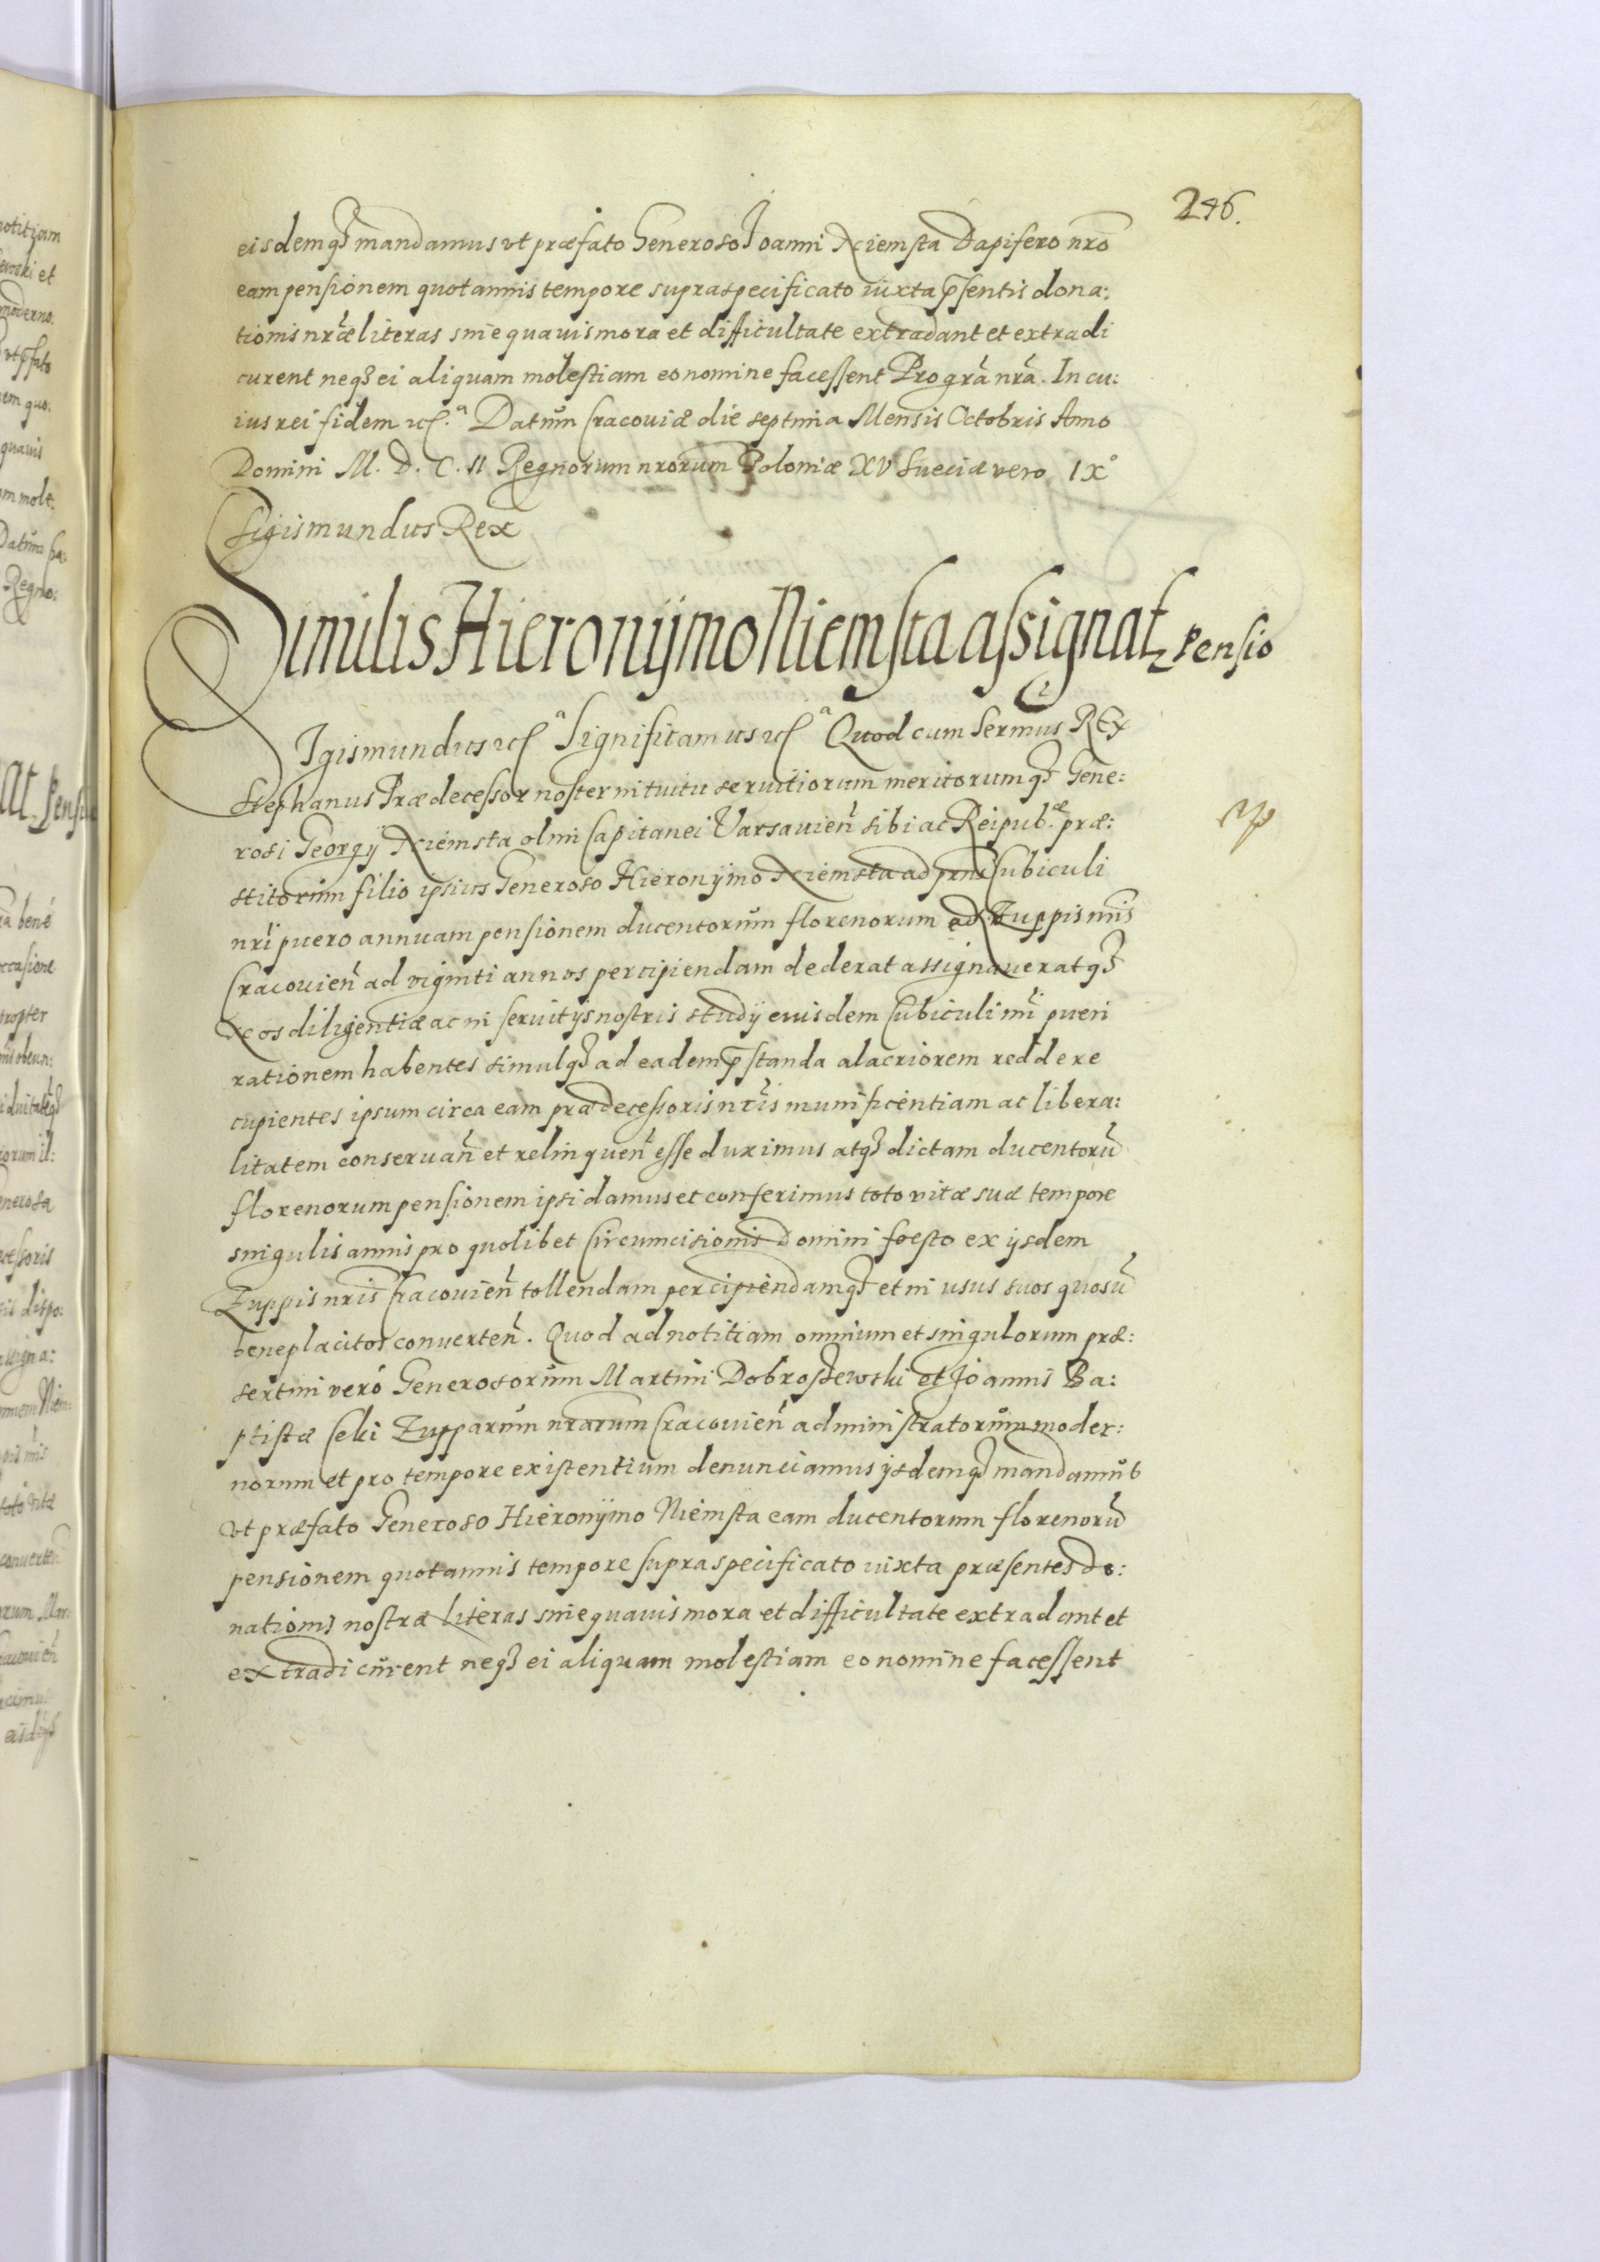 246.
eisdemq3 mandamus vt præfato Generoso Joanni Niemsta Dapifero nrō
eam pensionem quotannis tempore supraspecificato iuxta p̄sentis dona:
tionis nrǣ literas sine quauis mora et difficultate extradant et extradi
curent neq3 ei aliquam molestiam eo nomine facessent Pro grā nrā. In cu:
ius rei fidem etc.ª Datum Cracouiæ die septima Mensis Octobris Anno
Domini M. D. C. II. Regnorum nrorum Poloniæ XV Sueciæ vero IX°
Sigismundus Rex
Similis Hieronÿmo Niemsta assignatᵣ Pensio
Sigismundus etcª Significamus etcª Quod cum Sermus REx
Stephanus Prædecessor noster intuitu seruitiorum meritorumq3 Gene:
rosi Georgÿ Niemsta olim Capitanei Varsauien̄ sibi ac Reipub.æ præ:
stitorum filio ipsius Generoso Hieronÿmo Niemsta ad prns Cubiculi
nrī puero annuam pensionem ducentorum florenorum ad Zuppis nrīs
Cracouien̄ ad viginti annos percipiendam dederat assignaueratq3
Nos diligentiæ ac in seruitÿs nostris studÿ eiusdem Cubiculi nrī pueri
rationem habentes simulq3 ad eadem p̄standa alacriorem reddere
cupientes ipsum circa eam prædecessoris nrīs munificentiam ac libera:
litatem conseruan̄ et relinquen̄ esse duximus atq3 dictam ducentorū
florenorum pensionem ipsi damus et conferimus toto vitæ suæ tempore
singulis annis pro quolibet Circumcisionis Domini foesto ex ÿsdem
Zuppis nrīs Cracouien̄ tollendam percipiendamq3 et in usus suos quosuī
beneplacitos conuerten̄. Quod ad notitiam omnium et singulorum præ:
sertim veró Generosorum Martini Dobroszewski et Joannis Ba:
ptistæ Ceki Zupparum nrarum Cracouien̄ administratorum moder:
norum et pro tempore existentium denunciamus ÿsdemq3 mandamus
vt præfato Generoso Hieronÿmo Niemsta eam ducentorum florenorū
pensionem quotannis tempore supraspecificato iuxta præsentes do:
nationis nostræ literas sine quauis mora et difficultate extradant et
extradi curent neq3 ei aliquam molestiam eo nomine facessent